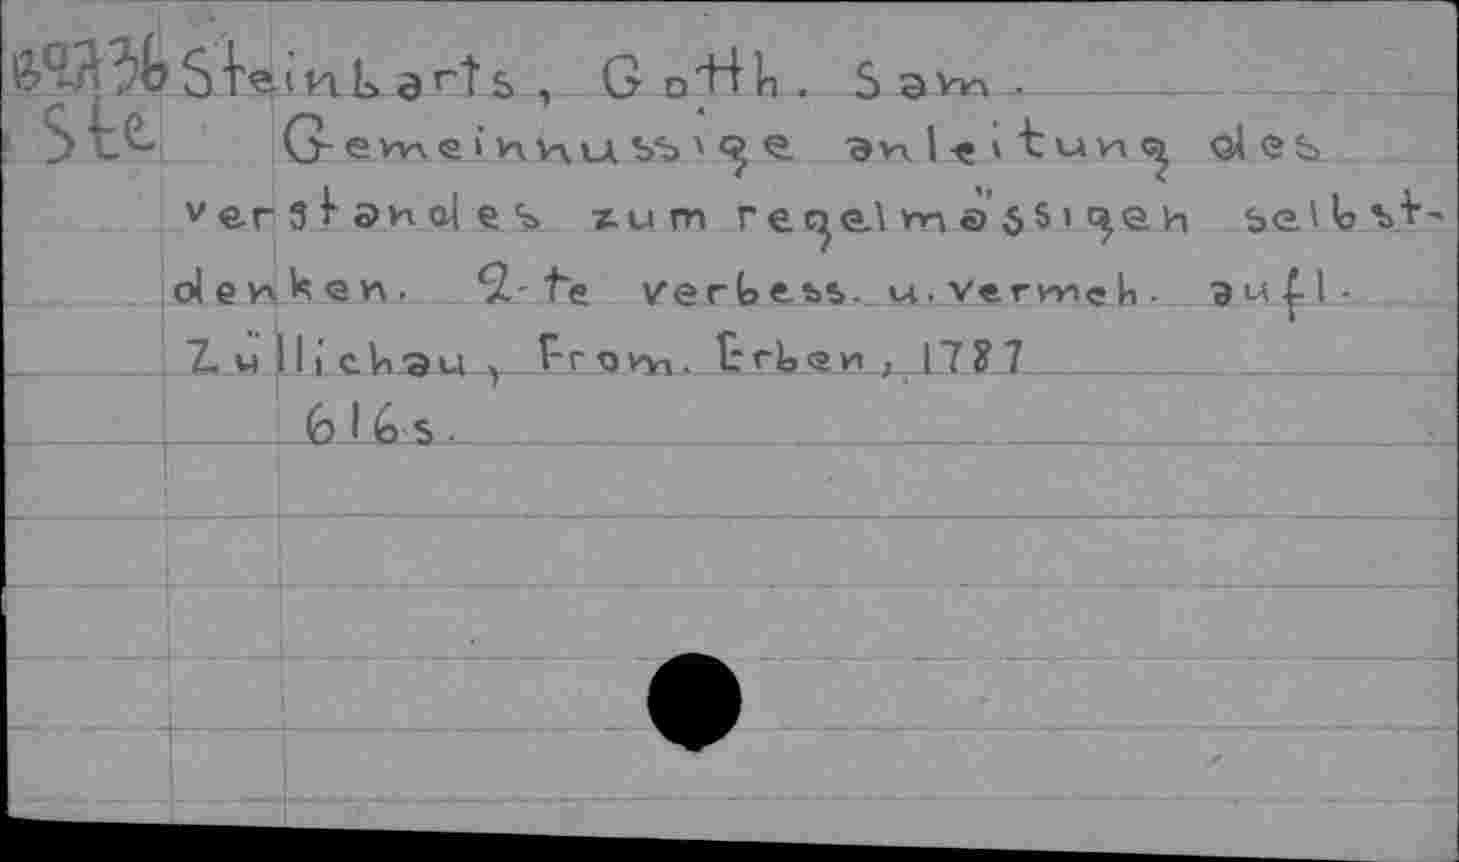 Steinbarts, Gotth. Sam.
Ste Gemeinnussige anleitung des
verstandes zum regelmässigen selbst-
denken. 2-te verbess. u. vermeh. aufl.
Züllichau, From. Erben, 1787
616s.